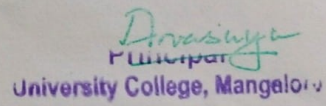 Principal
University College, Mangalore